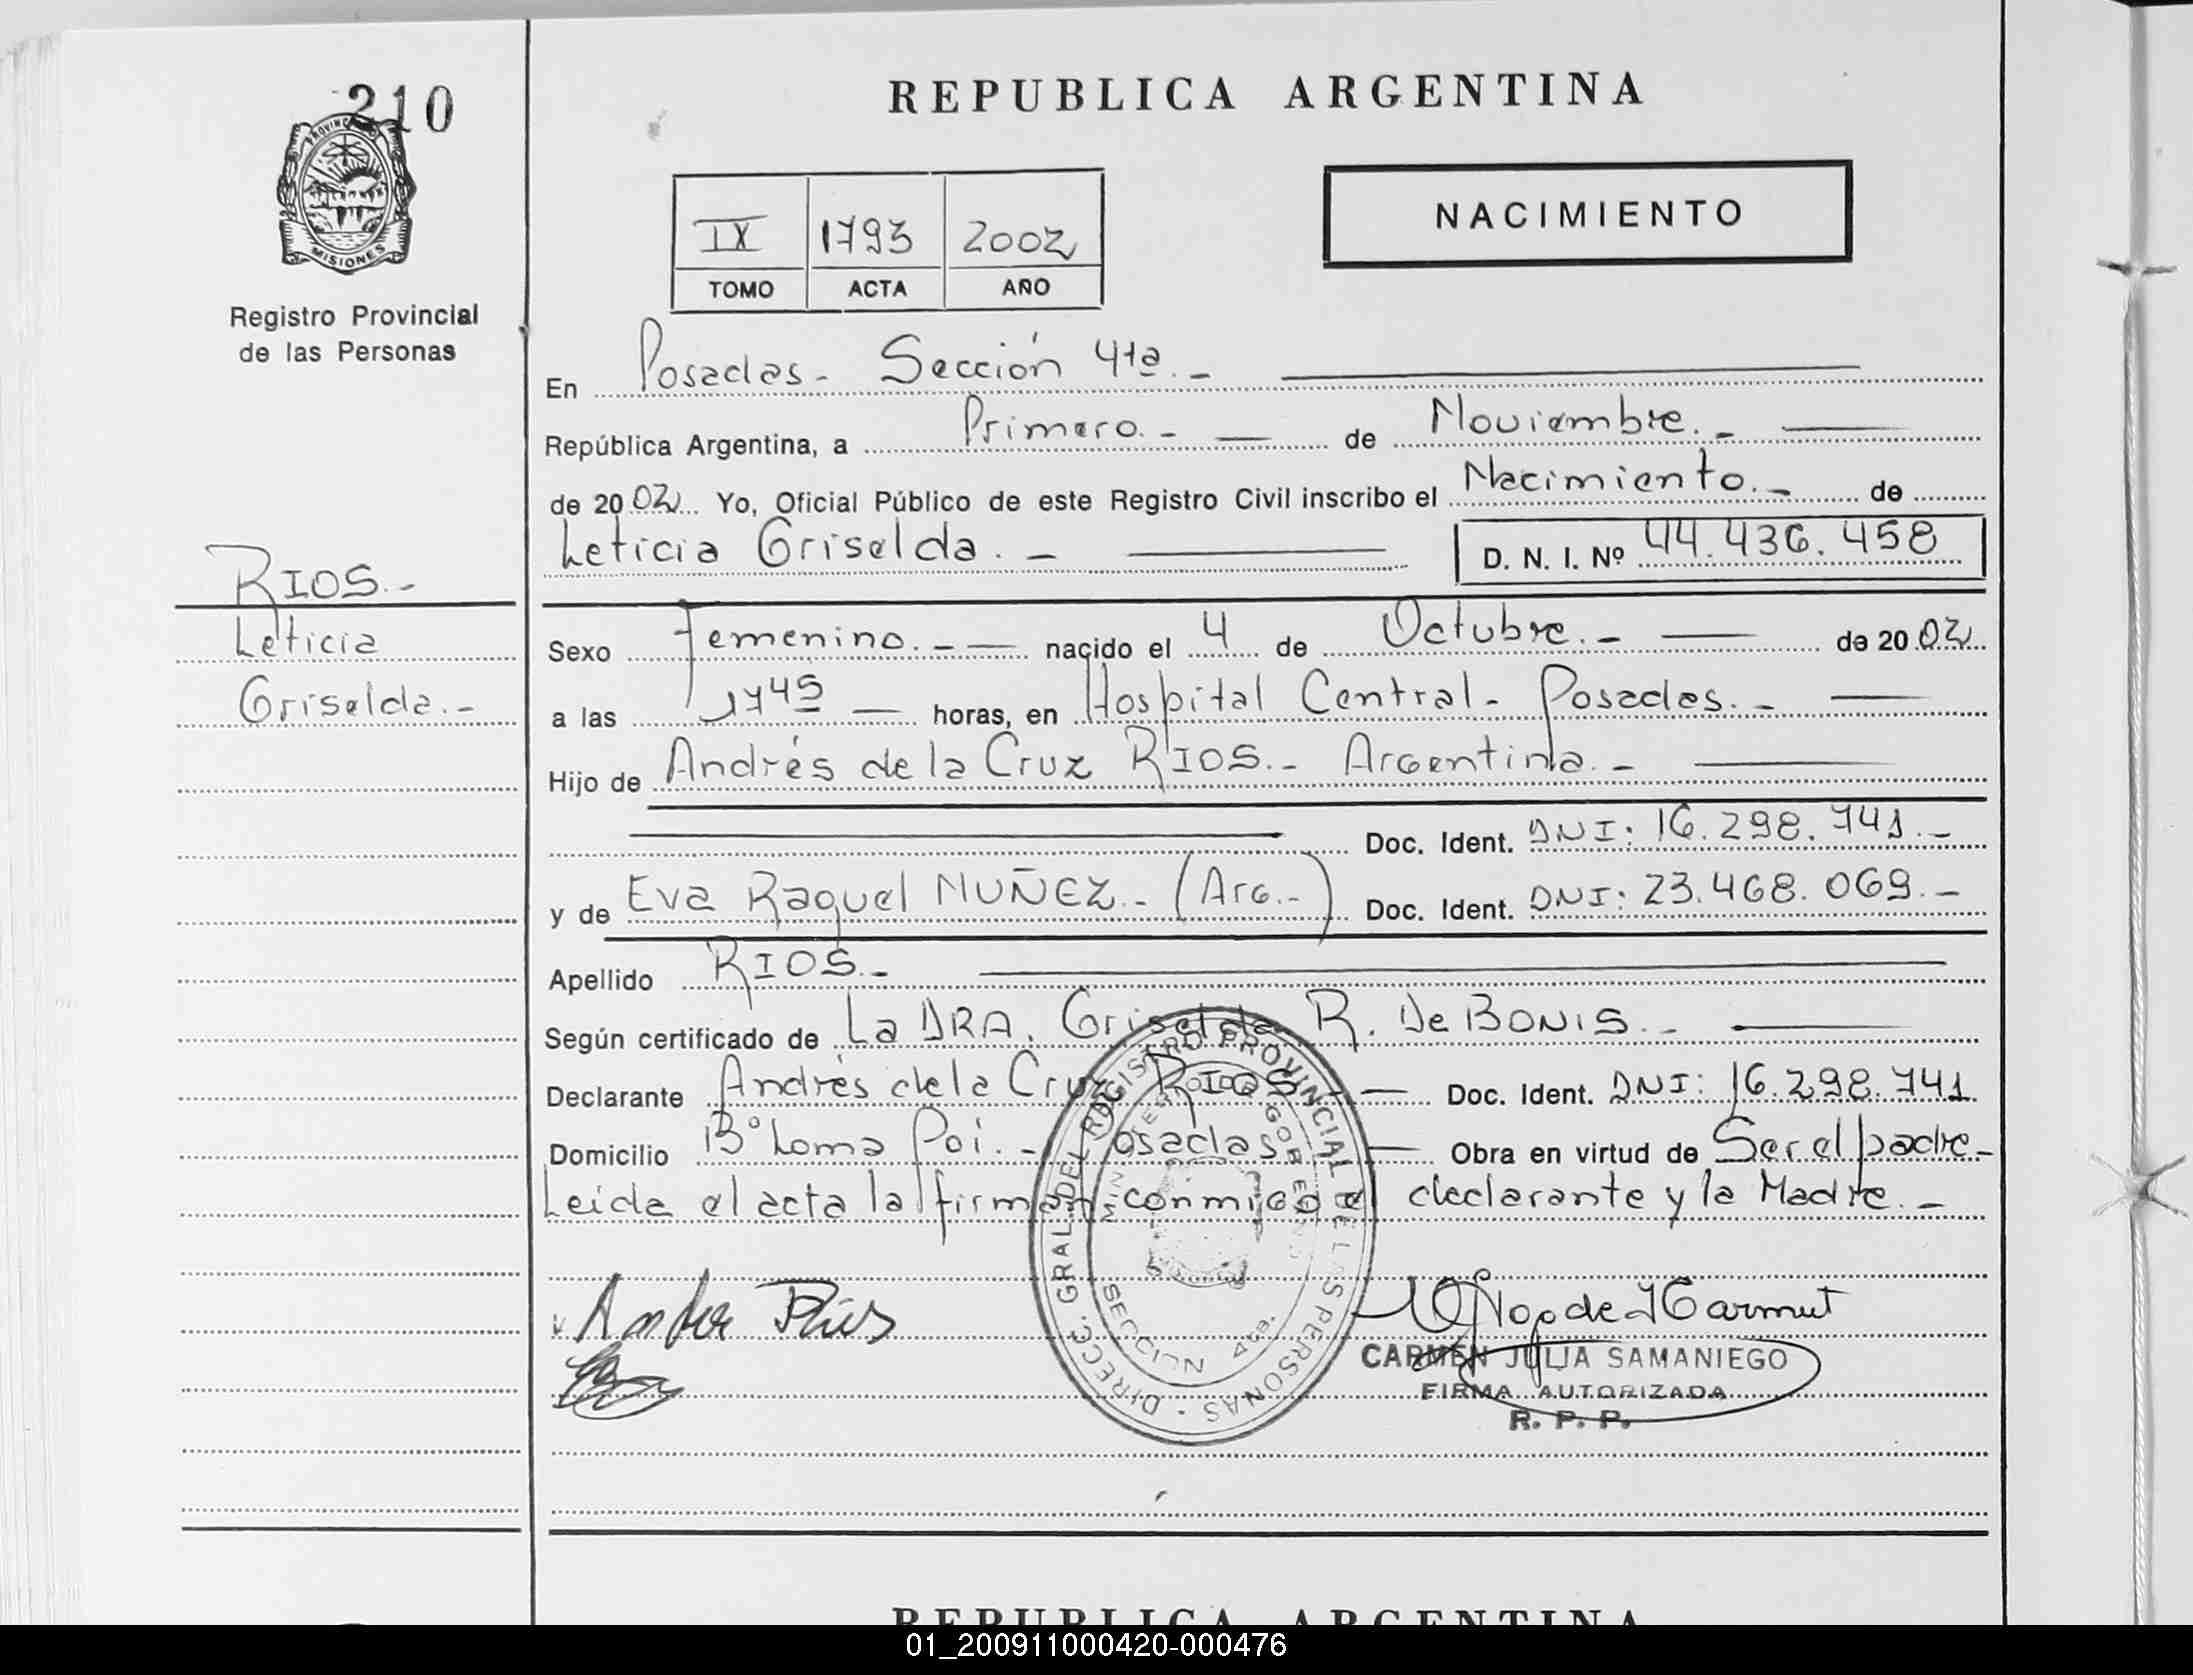 210
PROVINCIA
MISIONES
Registro Provincial
de las Personas
RIOS.-
Leticia
Griselda.-
REPUBLICA ARGENTINA
IX 1793 2002
TOMO ACTA AÑO
NACIMIENTO
En Posadas- Sección 4ta.-
República Argentina, a Primero.- de Noviembre.-
de 2002 Yo, Oficial Público de este Registro Civil inscribo el Nacimiento.- de
Leticia Griselda.- D. N. I. Nº 44.436.458
Sexo Femenino.- nacido el 4 de Octubre.- de 2002
a las 1745 horas, en Hospital Central- Posadas.-
Hijo de Andrés de la Cruz RIOS.- Argentina.-
Doc. Ident. DNI: 16.298.741.-
y de Eva Raquel NUÑEZ.- (Arg.-) Doc. Ident. DNI: 23.468.069.-
Apellido RIOS.-
Según certificado de La DRA. Griselda R. De BONIS.-
Declarante Andrés de la Cruz RIOS- Doc. Ident. DNI: 16.298.741
Domicilio Bº Loma Poi.- Posadas Obra en virtud de Ser el padre-
Leida el acta la firman conmigo el declarante y la Madre.-
DIRECC. GRAL. DEL REGISTRO PROVINCIAL DE LAS PERSONAS
SECCION 4ta.
CARMEN JULIA SAMANIEGO
FIRMA AUTORIZADA
R. P. P.
REPUBLICA ARGENTINA
01_200911000420-000476